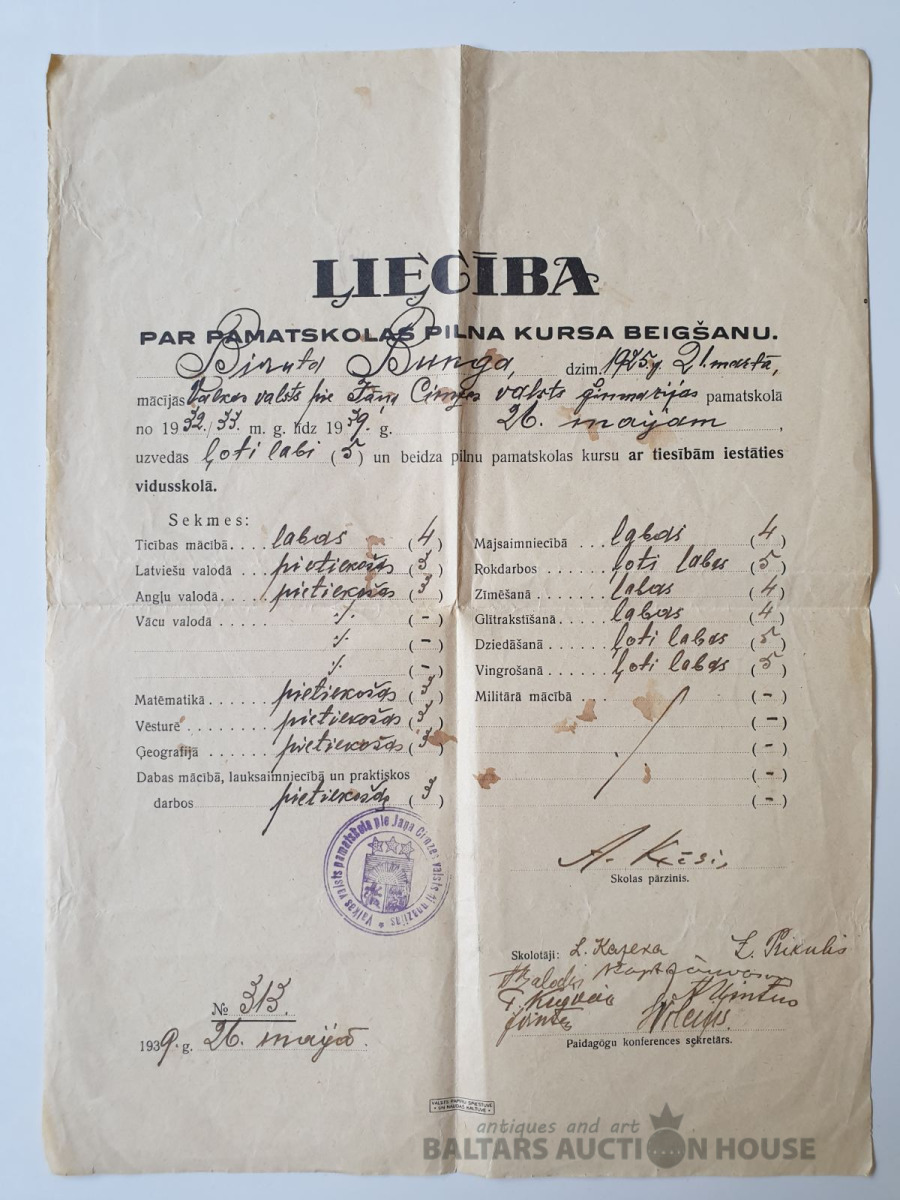 LIECĪBA
PAR PAMATSKOLAS PILNA KURSA BEIGŠANU.
Biruta Bunga, dzim. 1925. g. 21. martā,
mācījās Valkas valsts pie Jāņa Cimzes valsts ģimnāzijas pamatskolā
no 1932./33. m. g. līdz 1939. g. 26. maijam,
uzvedās ļoti labi (5) un beidza pilnu pamatskolas kursu ar tiesībām iestāties
vidusskolā.
Sekmes:
Ticības mācībā.... labas (4)
Latviešu valodā ... pietiekošas (3)
Angļu valodā..... pietiekošas (3)
Vācu valodā ·/. (-)
·/. (-)
·/. (-)
Matēmatikā....... pietiekošas (3)
Vēsturē ........ pietiekošas (3)
Ģeografijā ...... pietiekošas (3)
Dabas mācībā, lauksaimniecībā un praktiskos
darbos pietiekošas (3)
Mājsaimniecībā ... labas (4)
Rokdarbos ...... ļoti labas (5)
Zīmēšanā....... labas (4)
Glītrakstīšanā..... labas (4)
Dziedāšanā...... ļoti labas (5)
Vingrošanā...... ļoti labas (5)
Militārā mācībā ... (-)
(-)
(-)
(-)
(-)
Valkas valsts pamatskola pie Jāņa Cimzes valsts ģimnāzijas
Skolas pārzinis.
Skolotāji:
Paidagōgu konferences sekretārs.
№ 313.
1939. g. 26. maijā.
VALSTS PAPĪRU SPIESTUVE
UN NAUDAS KALTUVE
antiques and art
BALTARS AUCTION HOUSE